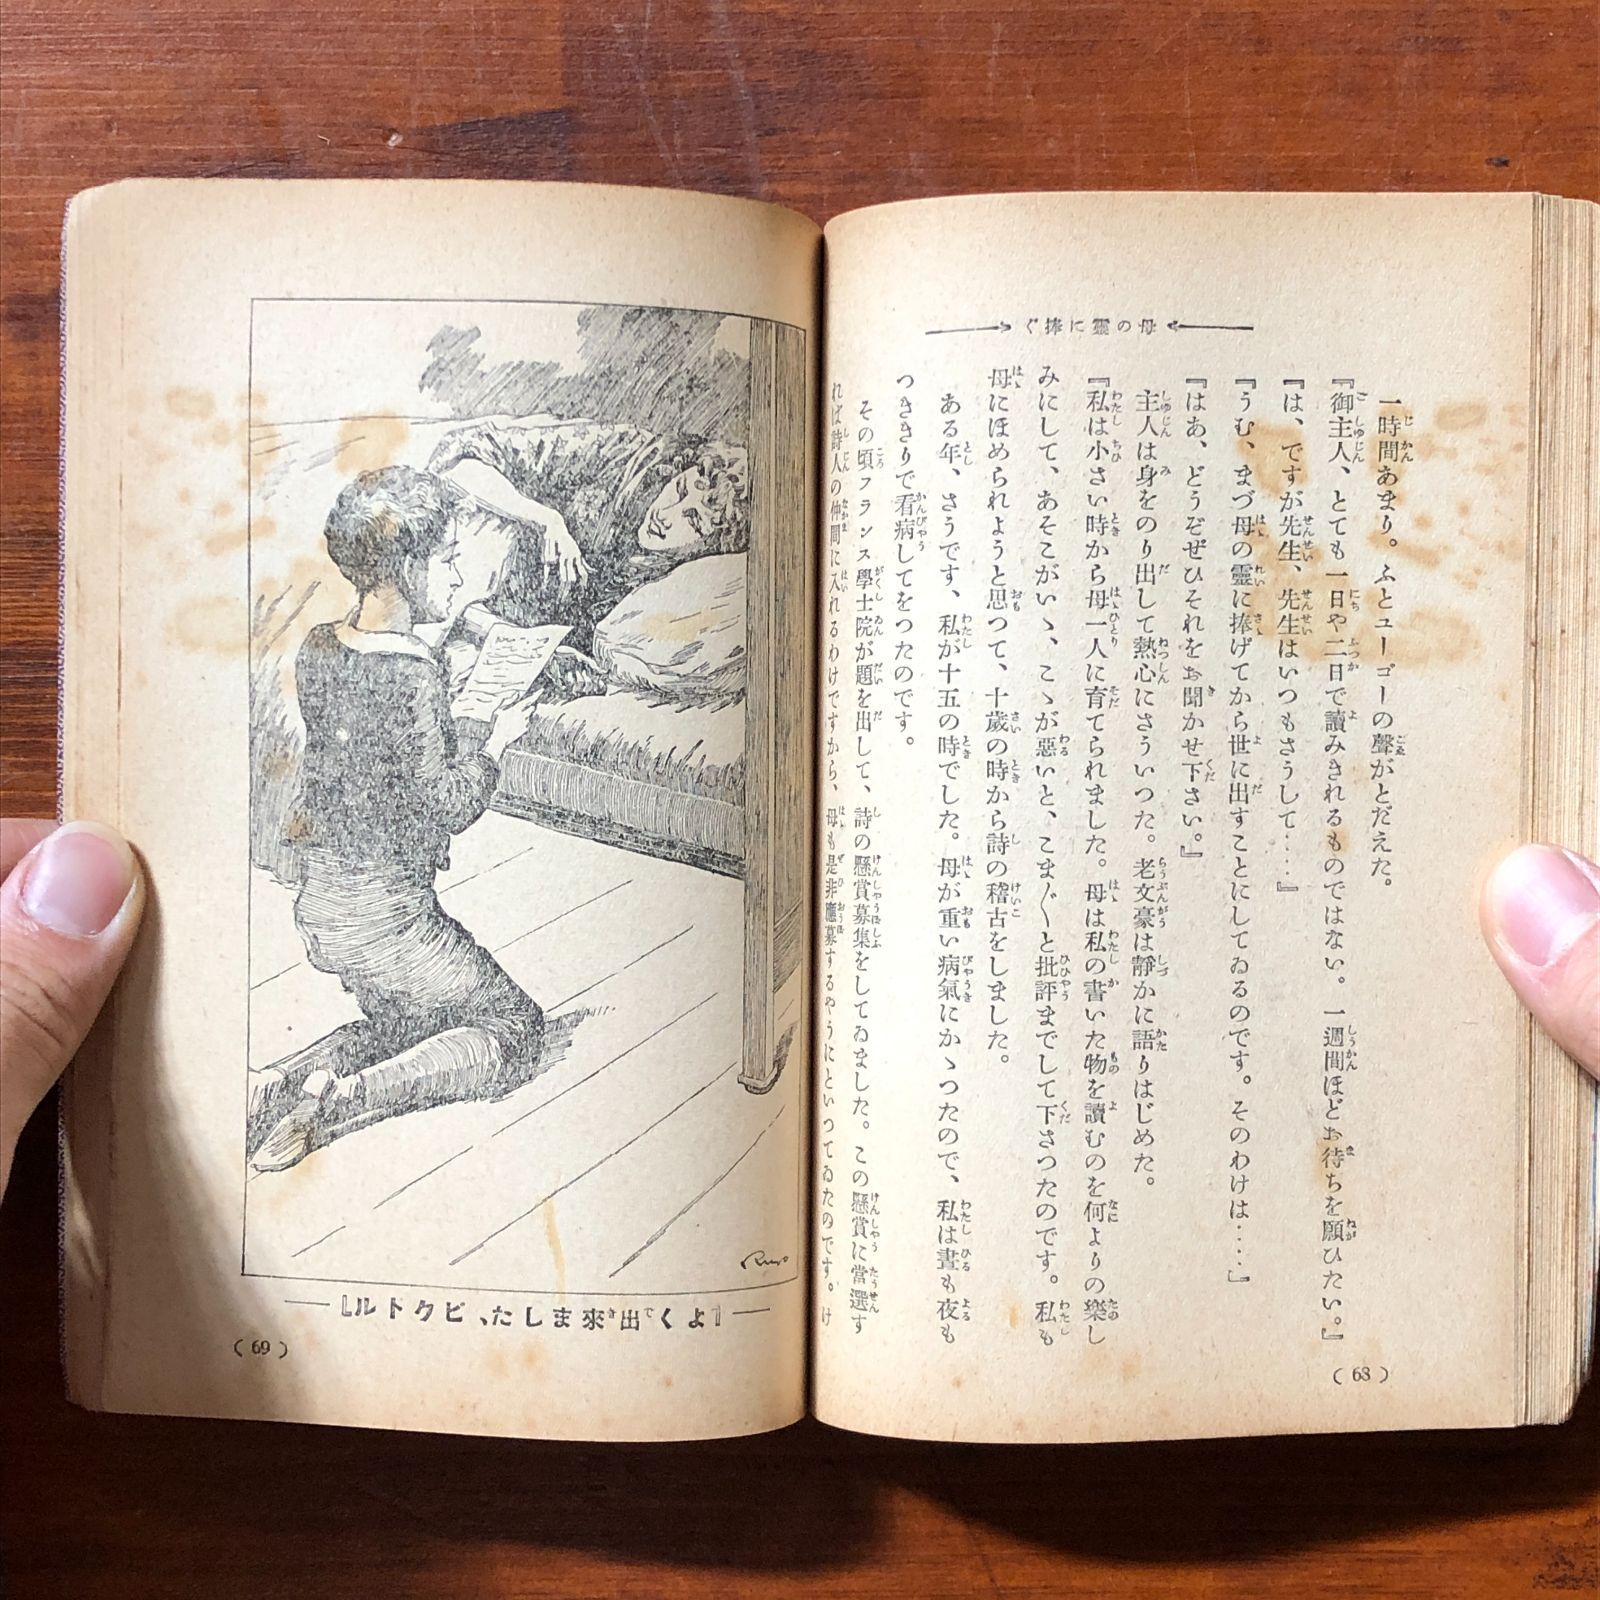 母の靈に捧ぐ
一時間あまり。ふとユーゴーの聲がとだえた。
『御主人、とても一日や二日で讀みきれるものではない。一週間ほどお待ちを願ひたい。』
『は、ですが先生、先生はいつもさうして‥‥』
『うむ、まづ母の靈に捧げてから世に出すことにしてゐるのです。そのわけは‥‥』
『はあ、どうぞぜひそれをお聞かせ下さい。』
主人は身をのり出して熱心にさういつた。老文豪は靜かに語りはじめた。
『私は小さい時から母一人に育てられました。母は私の書いた物を讀むのを何よりの樂し
みにして、あそこがいゝ、こゝが惡いと、こま〲と批評までして下さつたのです。私も
母にほめられようと思つて、十歲の時から詩の稽古をしました。
ある年、さうです、私が十五の時でした。母が重い病氣にかゝつたので、私は晝も夜も
つききりで看病してをつたのです。
その頃フランス學士院が題を出して、詩の懸賞募集をしてゐました。この懸賞に當選す
れば詩人の仲間に入れるわけですから、母も是非應募するやうにといつてゐたのです。け
(68)
『よく出來ました、ビクトル』
(69)